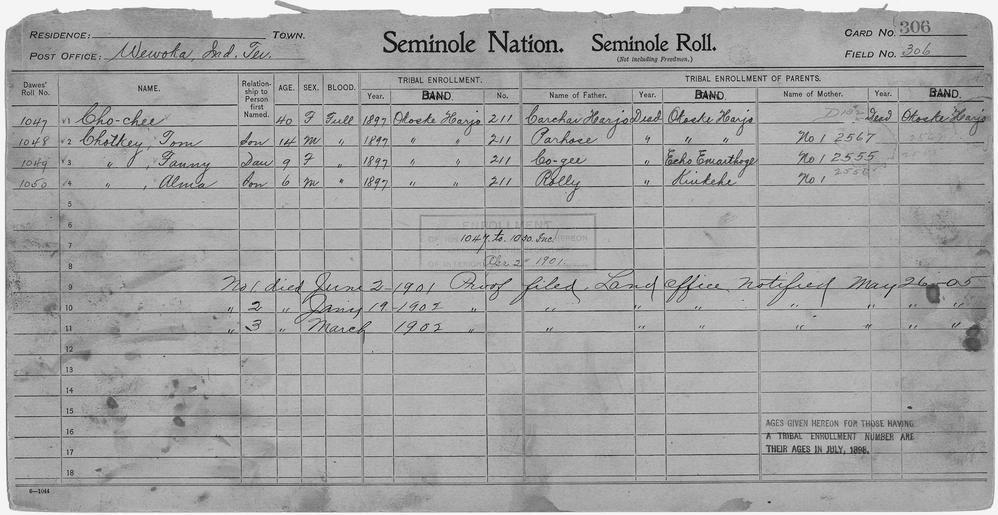 RESIDENCE: TOWN. Seminole Nation. Seminole Roll. CARD NO. 306
POST OFFICE: Wewoka, Ind. Ter. (Not including Freedmen.) FIELD NO. 306
Dawes' Roll No. NAME. Relationship to Person first Named. AGE. SEX. BLOOD. TRIBAL ENROLLMENT. TRIBAL ENROLLMENT OF PARENTS.
Year. BAND. No. Name of Father. Year. BAND. Name of Mother. Year. BAND.
1047 1 Cho-chee 40 F Full 1897 Otoske Harjo 211 Carchar Harjo Dead Otoske Harjo Dead Otoske Harjo
1048 2 Chotkey, Tom Son 14 M " 1897 " " 211 Parhose " " " No 1 2567
1049 3 " , Fanny Dau 9 F " 1897 " " 211 Co-gee " Echo Emarthoge No 1 2555
1050 4 " , Alma Son 6 M " 1897 " " 211 Rolly " No 1
5
6
ENROLLMENT
7 1047 to 1050 Inc. HEREON
Apr 2 1901.
8
9 No 1 died June 2-1901 Proof filed. Land office Notified May 26-05
10 " 2 " Jany 19-1902 " " " " " " "
11 " 3 " March 1902 " " " " " " "
12
13
14
15
16
AGES GIVEN HEREON FOR THOSE HAVING
A TRIBAL ENROLLMENT NUMBER ARE
THEIR AGES IN JULY, 1898.
17
18
6—1044